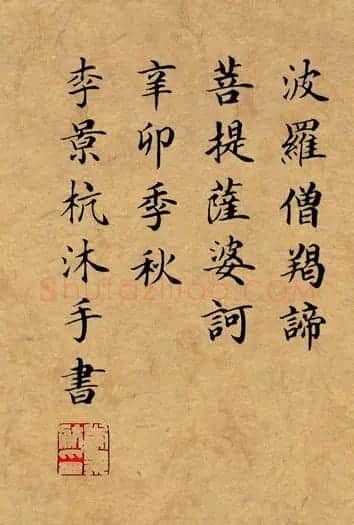 波羅僧羯諦
菩提薩婆訶
辛卯季秋
李景杭沐手書